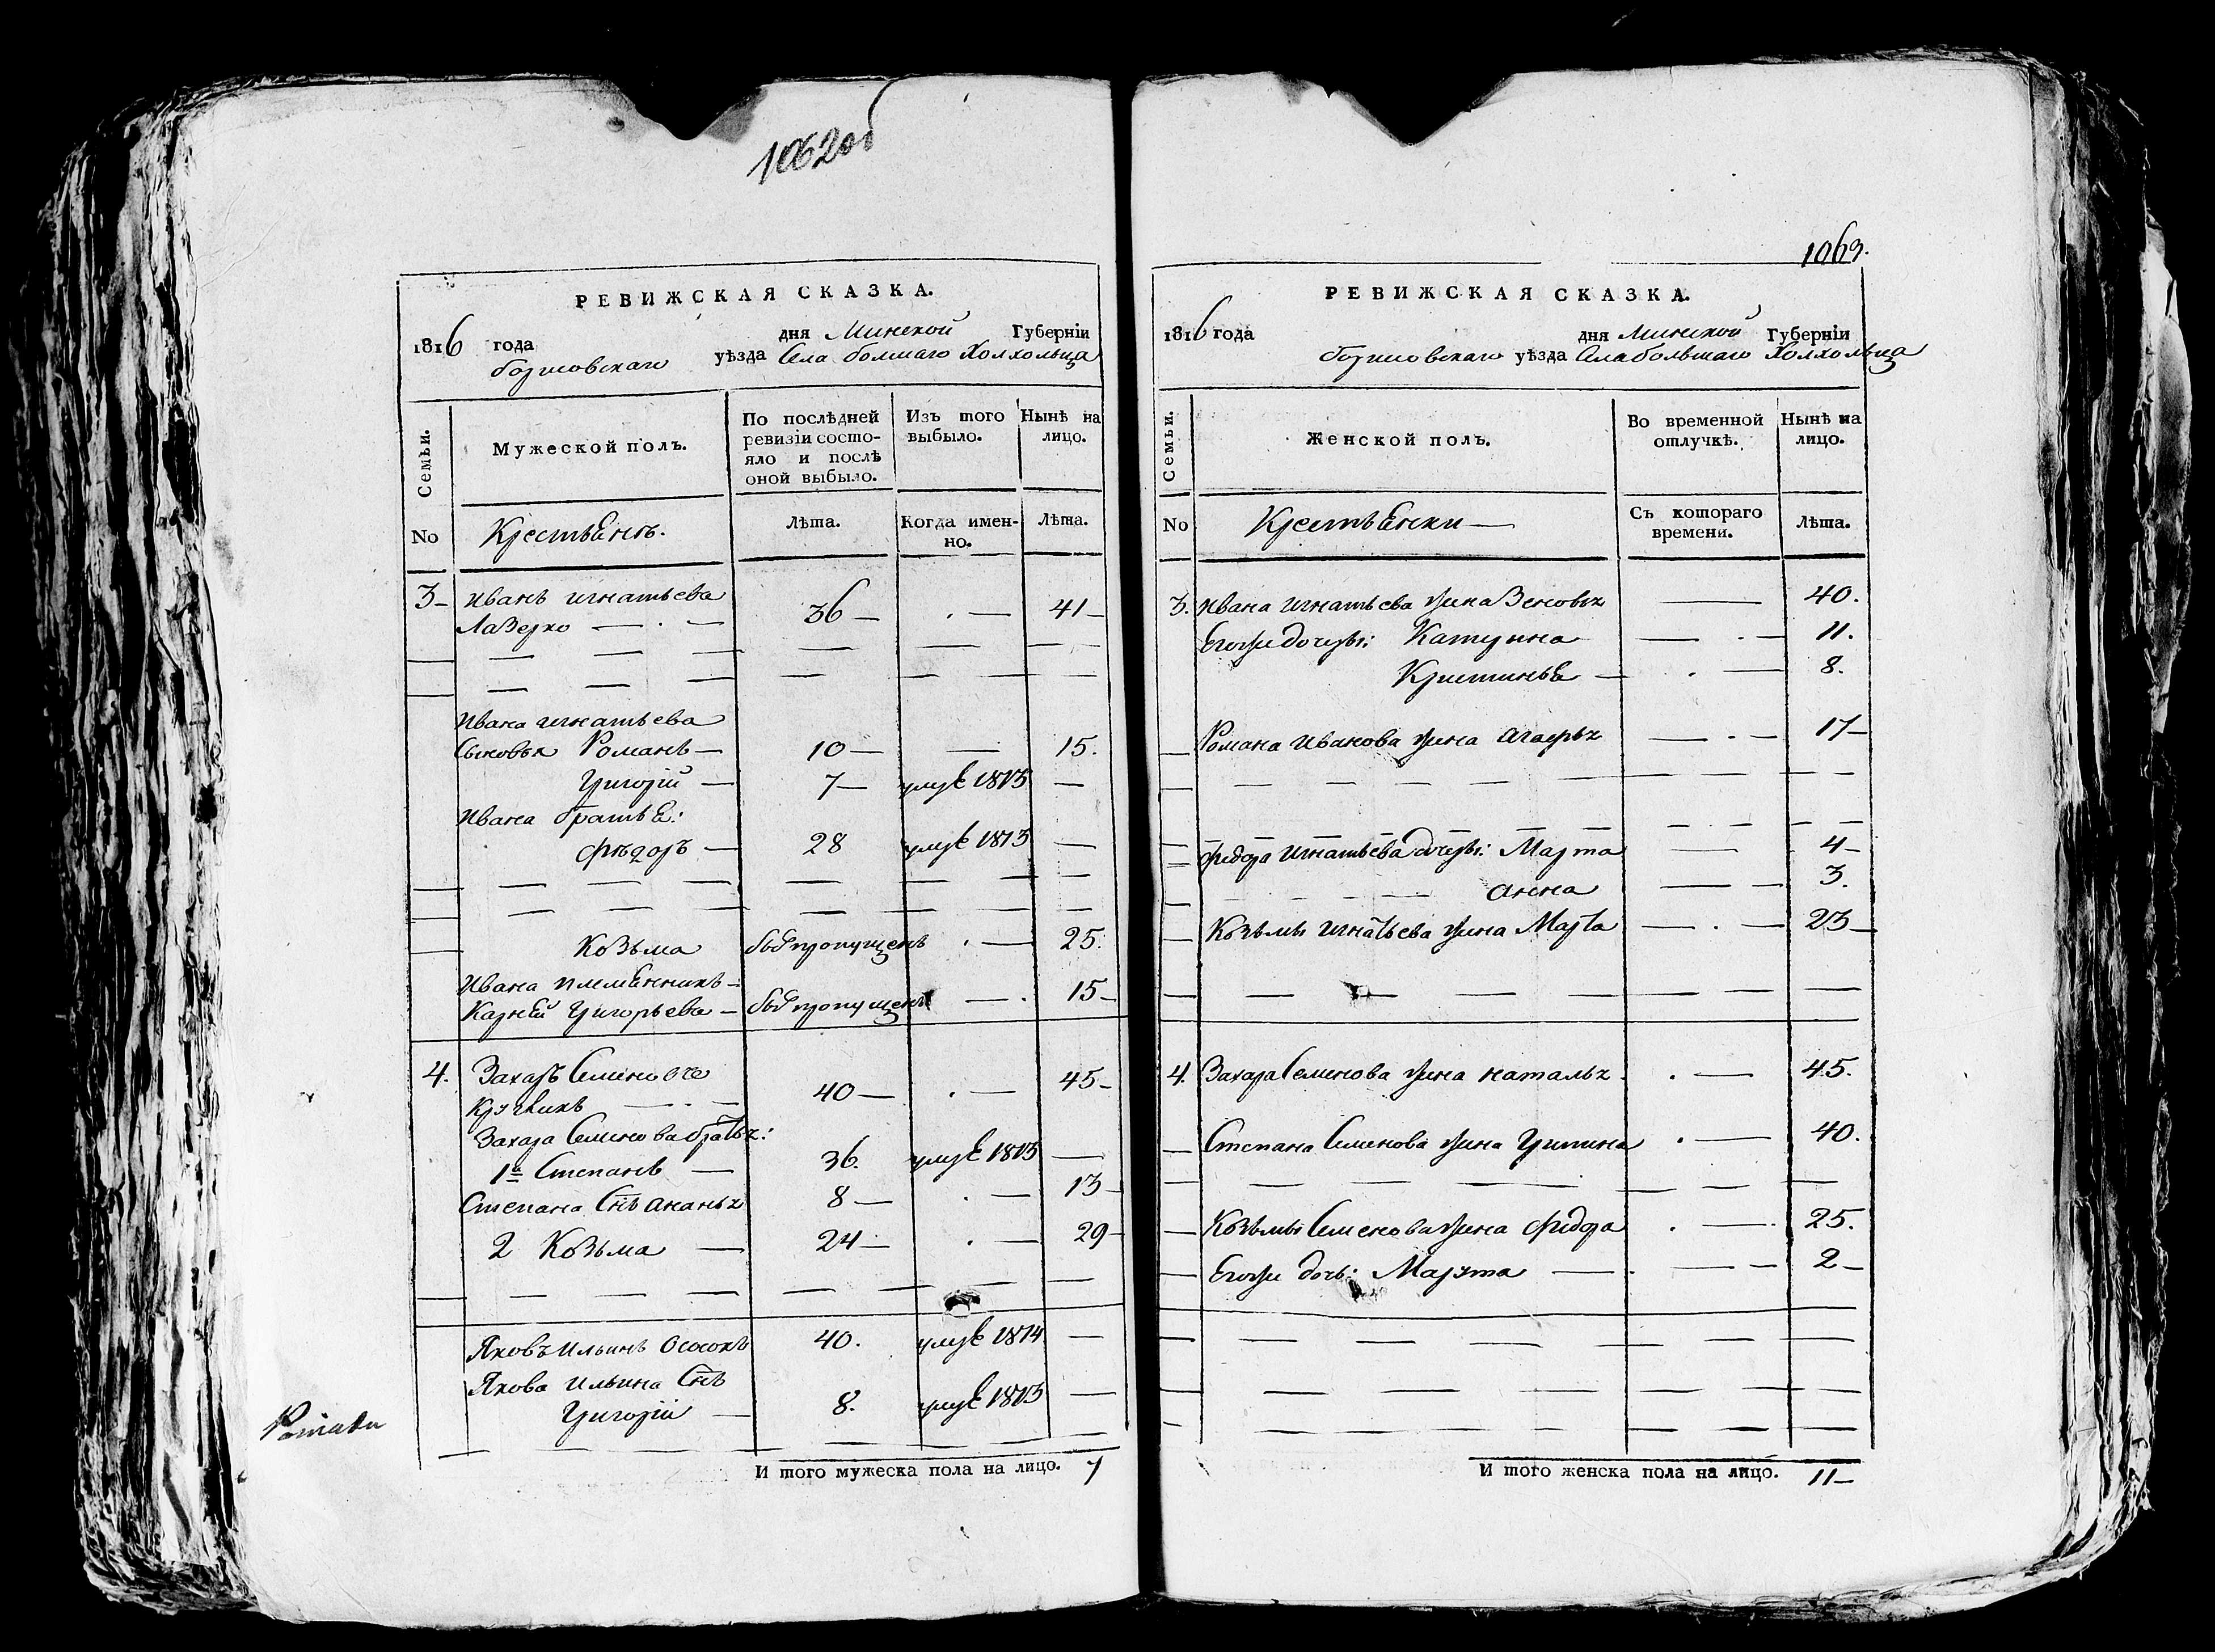 1062об
РЕВИЖСКАЯ СКАЗКА.
1816 года дня Минской Губерніи
борисовскаго уѣзда Села болшаго Холхольца
Семьи. Мужеской полъ. По послѣдней ревизіи состояло и послѣ оной выбыло. Изъ того выбыло. Нынѣ на лицо.
No Крестьѣнѣ. Лѣта. Когда именно. Лѣта.
3 Иванъ игнатьева
Лазерко 36 41
Ивана игнатьева
Сыновья Романъ 10 15.
Григорій 7 умре 1813
Ивана братьѣ:
Фѣдоръ 28 умре 1813
Козьма был пропущенъ 25.
Ивана племѣнникъ
Карнѣй Григорьева был пропущенъ 15
4. Захаръ Семенова
40 45
Захара Семенова братья:
1й Степанъ 36. умре 1813
Степана Снъ Ананья 8 13
2 Козьма 24 29
Яковъ Ильинъ Ососокъ 40. умре 1814
Якова Ильина Снъ
Григорій 8. умре 1813
И того мужеска пола на лицо. 7
1063.
РЕВИЖСКАЯ СКАЗКА.
1816 года дня Минской Губерніи
борисовскаго уѣзда Села большаго Холхольца
Семьи. Женской полъ. Во временной отлучкѣ. Нынѣ на лицо.
No Крестьѣнки Съ котораго времени. Лѣта.
3. Ивана игнатьева жена Зеновья 40.
Егожи дочеры: Катерына 11.
Кристиньѣ 8.
Романа Иванова жена Агафья 17
Фидора Игнатьева дочеры: Марта 4
Анна 3.
Козьмы Игнатьева жена Марта 23
4. Захара Семенова жена Наталья 45.
Степана Семенова жена Грипина 40.
Козьмы Семенова жена Фидора 25.
Егожи дочь: Марута 2
И того женска пола на лицо. 11